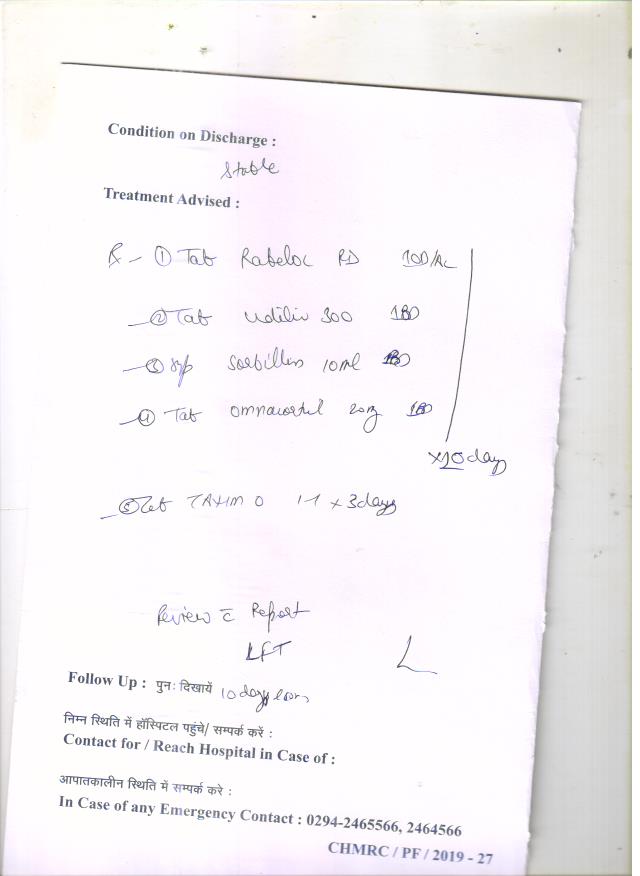 Condition on Discharge :
Stable
Treatment Advised :
Rx - ① Tab Rabeloc RD 1OD/AC
② Tab Udiliv 300 1BD
③ Syp Sorbiline 10ml BD
④ Tab Omnacortil 20mg 1BD
x10 day
⑤ Tab TAXIM O 1-1 x 3 days
Review c̄ Report
LFT
Follow Up : पुनः दिखायें 10 days
निम्न स्थिति में हॉस्पिटल पहुंचे/ सम्पर्क करें :
Contact for / Reach Hospital in Case of :
आपातकालीन स्थिति में सम्पर्क करे :
In Case of any Emergency Contact : 0294-2465566, 2464566
CHMRC / PF / 2019 - 27